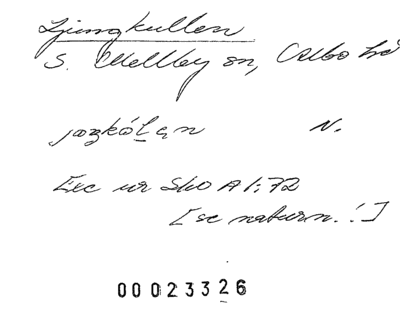 Ljungkullen
S. Mellby sn, Albo hd
N.
Exc ur Sko A 1:72
[se naturn.!]
00023326